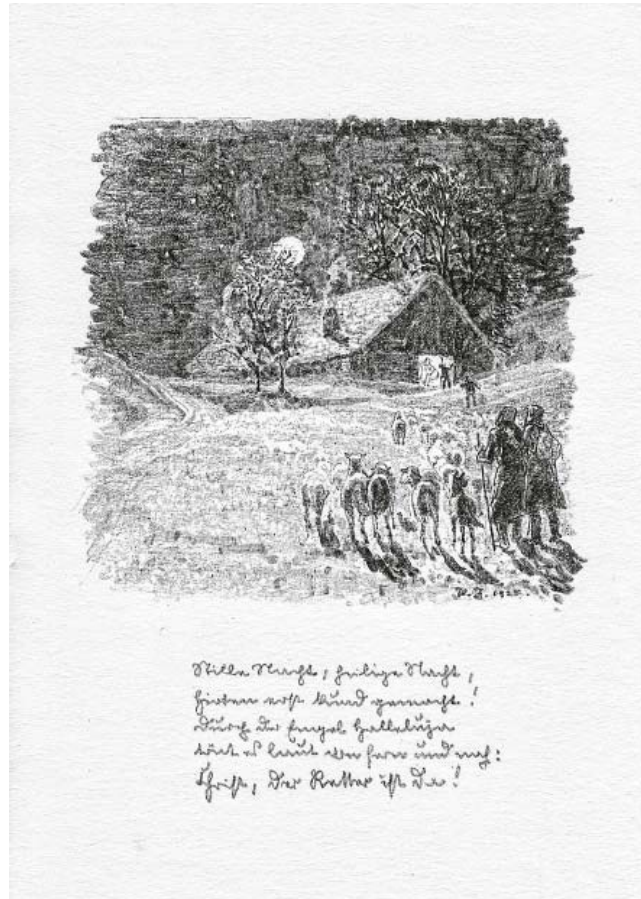 Stille Nacht, heilige Nacht,
Hirten erst kund gemacht!
Durch der Engel Halleluja
tönt es laut von fern und nah:
Christ, der Retter ist da!